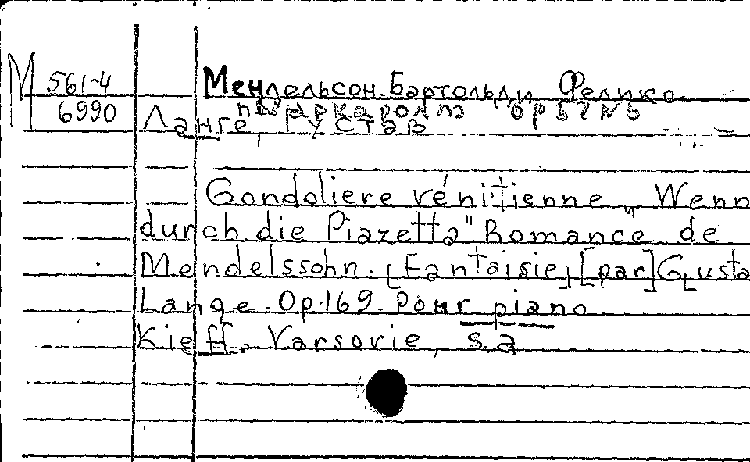 М 561-4 Мендельсон-Бартольди Феликс
6990 Ланге, Густав
Gondoliere vénitienne „Wenn
durch die Piazetta" Romance de
Mendelssohn. [Fantaisie] [par] Gusta
Lange. Op.169. Pour piano
Kieff. Varsovie, s.a